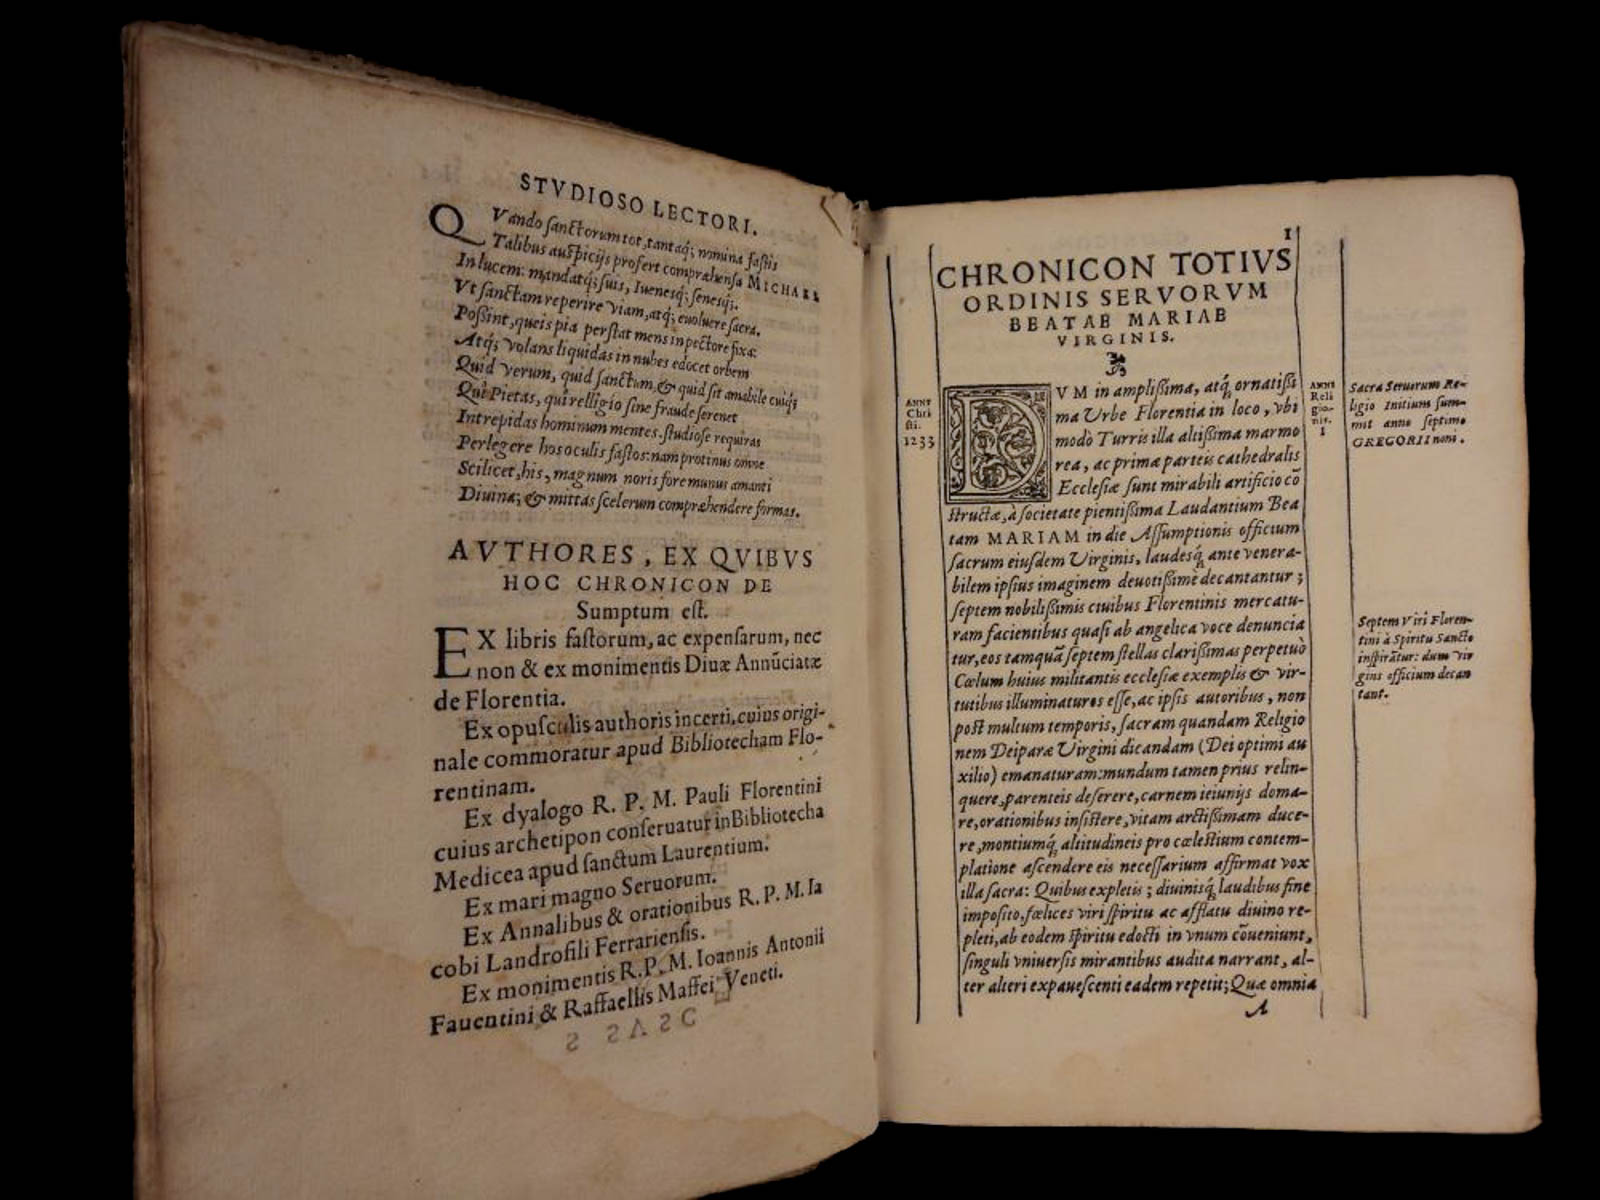 STVDIOSO LECTORI.
QVando sanctorum tot, tantaq; nomina fastis
Talibus auspicijs profert compræhensa MICHAEL
In lucem: mandatq; suis, Iuenesq; senesq;
Vt sanctam reperire viam, atq; euoluere sacra.
Possint, queis pia perstat mens in pectore fixa:
Atq; volans liquidas in nubes edocet orbem
Quid verum, quid sanctum, & quid sit amabile cuiq;
Qui Pietas, qui relligio sine fraude serenet
Intrepidas hominum mentes. studiose requiras
Perlegere hos oculis fastos: nam protinus omne
Scilicet, his, magnum noris fore munus amanti
Diuina; & mittas scelerum compræhendere formas.
AVTHORES, EX QVIBVS
HOC CHRONICON DE
Sumptum est.
EX libris fastorum, ac expensarum, nec
non & ex monimentis Diuæ Annūciatæ
de Florentia.
Ex opusculis authoris incerti, cuius origi-
nale commoratur apud Bibliotecham Flo-
rentinam.
Ex dyalogo R. P. M. Pauli Florentini
cuius archetipon conseruatur in Bibliotecha
Medicea apud sanctum Laurentium.
Ex mari magno Seruorum.
Ex Annalibus & orationibus R. P. M. Ia
cobi Landrofili Ferrariensis.
Ex monimentis R. P. M. Ioannis Antonii
Fauentini & Raffaellis Maffei Veneti.
1
CHRONICON TOTIVS
ORDINIS SERVORVM
BEATAE MARIAE
VIRGINIS.
ANNI
Chri
sti.
1233
DVM in amplissima, atq; ornatissi
ma Urbe Florentia in loco, vbi
modò Turris illa altissima marmo
rea, ac primæ parteis cathedralis
Ecclesiæ sunt mirabili artificio cō
structæ, à societate pientissima Laudantium Bea
tam MARIAM in die Assumptionis officium
sacrum eiusdem Virginis, laudesq; ante venera-
bilem ipsius imaginem deuotissimè decantantur;
septem nobilissimis ciuibus Florentinis mercatu-
ram facientibus quasi ab angelica voce denuncia
tur, eos tamquā septem stellas clarissimas perpetuò
Cœlum huius militantis ecclesiæ exemplis & vir-
tutibus illuminatures esse, ac ipsis autoribus, non
post multum temporis, sacram quandam Religio
nem Deiparæ Virgini dicandam (Dei optimi au
xilio) emanaturam: mundum tamen prius relin-
quere, parenteis deserere, carnem ieiunijs doma-
re, orationibus insistere, vitam arctissimam duce-
re, montiumq; altitudineis pro cœlestium contem-
platione ascendere eis necessarium affirmat vox
illa sacra: Quibus expletis; diuinisq; laudibus fine
imposito, fœlices viri spiritu ac afflatu diuino re-
pleti, ab eodem spiritu edocti in vnum cōueniunt,
singuli vniuersis mirantibus audita narrant, al-
ter alteri expauescenti eadem repetit; Quæ omnia
A
ANNI
Reli
gio-
nis.
1
Sacra Seruorum Re-
ligio Initium sum-
mit anno septimo
GREGORII noni.
Septem Viri Floren-
tini à Spiritu Sancto
inspirātur: dum vir
ginis officium decan
tant.